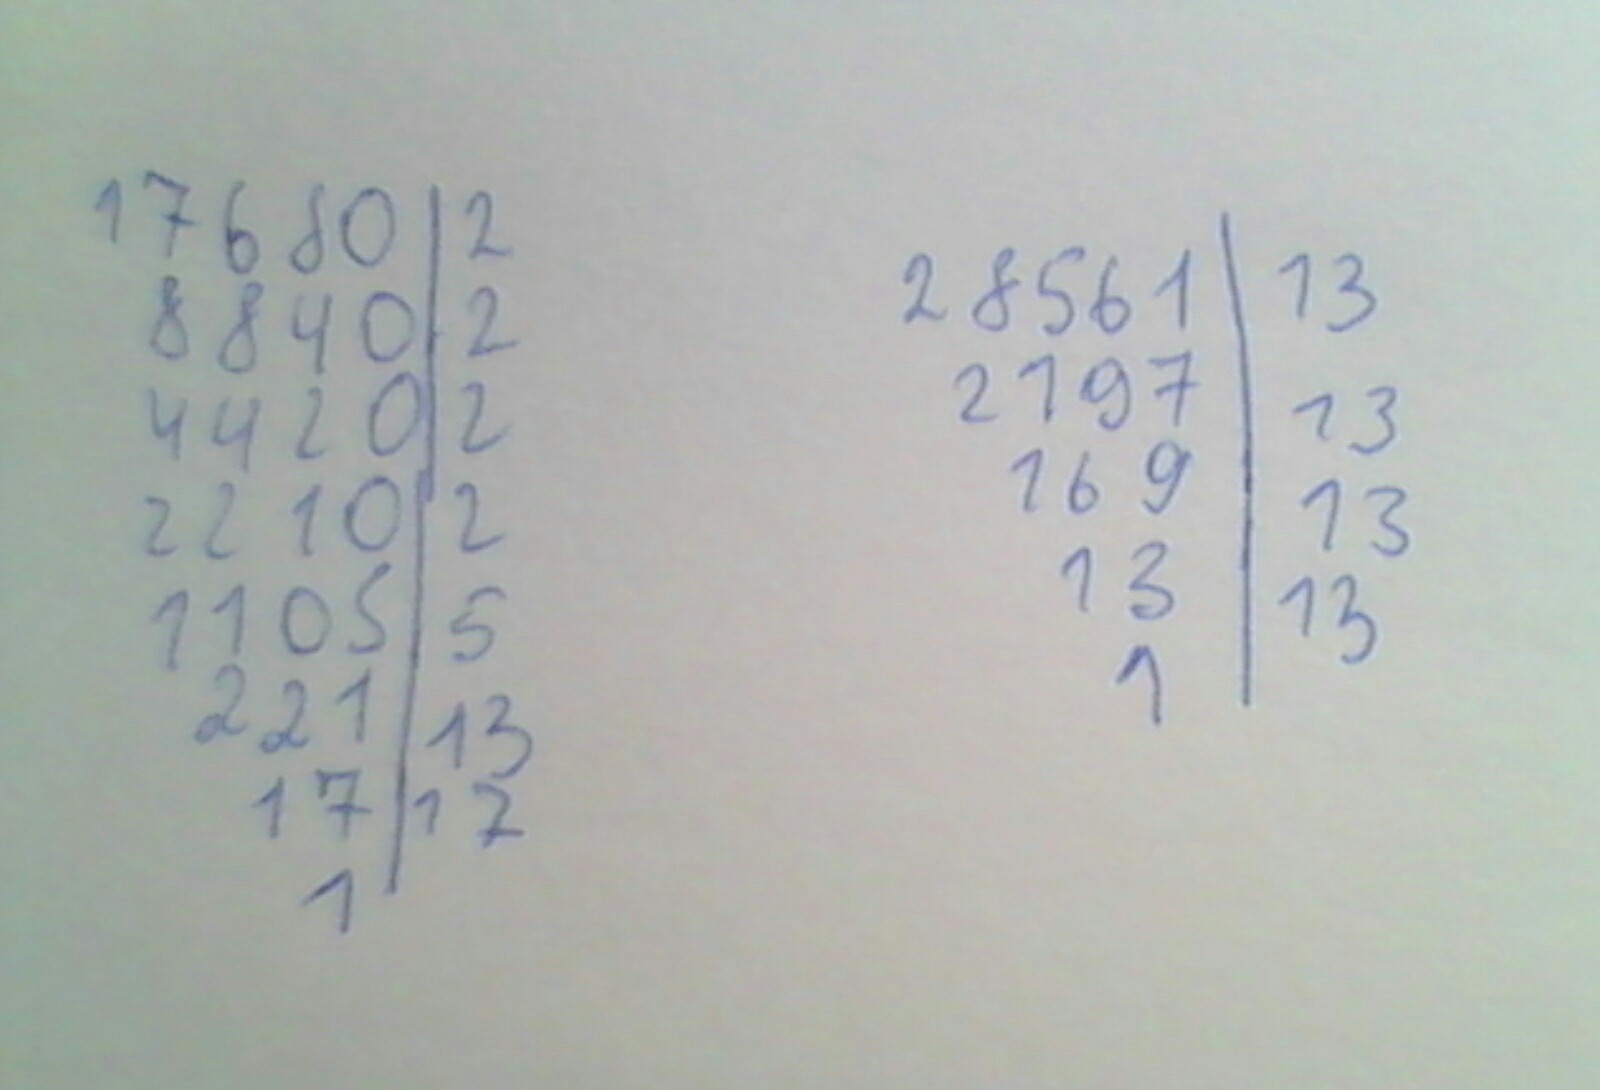 17680 | 2
8840 | 2
4420 | 2
2210 | 2
1105 | 5
221 | 13
17 | 17
1
28561 | 13
2197 | 13
169 | 13
13 | 13
1